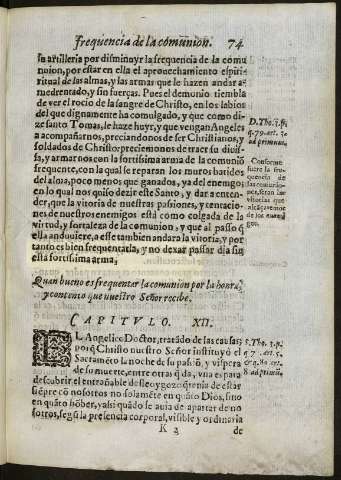 Freqüencia de la comunion. 74
su artilleria por disminuyr la frequencia de la comu
nion, por estar en ella el aprouechamiento espiri-
ritual de las almas, y las armas que le hazen andar a-
medrentado, y sin fuerças. Pues el demonio tiembla
de ver el rocio de la sangre de Christo, en los labios
del que dignamente ha comulgado, y que como di-
ze santo Tomas, le haze huyr, y que vengan Angeles
a acompañarnos, preciandonos de ser Christianos, y
soldados de Christo: preciemonos de traer su diuis-
sa, y armarnos con la fortissima arma de la comunió
frequente, con la qual se reparan los muros batidos
del alma, poco menos que ganados, ya del enemigo:
en lo qual nos quiso dezir este Santo, y dar a enten-
der, que la vitoria de nuestras passiones, y tentacio-
nes de nuestros enemigos está como colgada de la
virtud, y fortaleza de la comunion, y que al passo q̃
ella anduuiere, a esse tambien andara la vitoria, y por
tanto es bien frequentarla, y no dexar passar dia sin
esta fortissima arma,
D. Tho. 3. p.
q. 79. art.
ad primum.
Conforme
fuere la fre
quencia de
las comunio-
nes, seran las
vitorias que
alcãçaremos
de los enemi
gos.
Quan bueno es frequentar la comunion por la honra,
y contento que nuestro Señor recibe.
CAPITVLO. XII.
EL Angelico Doctor, tratãdo de las causas
porq̃ Christo nuestro Señor instituyó el
Sacramẽto la noche de su passió, y vispera
de su muerte, entre otras q̃ da, vna es para
descubrir el entrañable desseo y gozo q̃ tenia de estar
siẽpre cõ nosotros no solamẽte en quãto Dios, sino
en quãto hõbre, y assi quãdo se auia de apartar de no
sotros, segũ la presencia corporal, visible y ordinaria
S. Tho. 3. p.
q. 7 art. 5.
&
ad primũ.
K 2 de